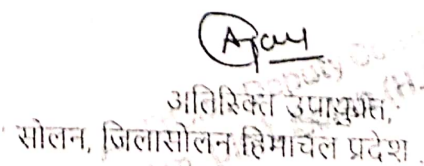 Ajay
अतिरिक्त उपायुक्त,
सोलन, जिलासोलन हिमाचल प्रदेश